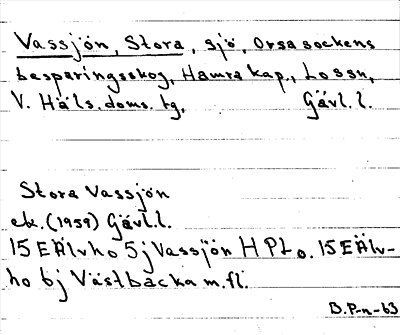 Vassjön, Stora, sjö, Orsa sockens
besparingsskog, Hamra kap., Lossn,
V. Häls. doms. tg, Gävl. l.
Stora Vassjön
ek. (1959) Gävl. l.
15 E Älvho 5j Vassjön H PL o. 15 E Älv-
ho 6j Västbacka m. fl.
B. P-n-63